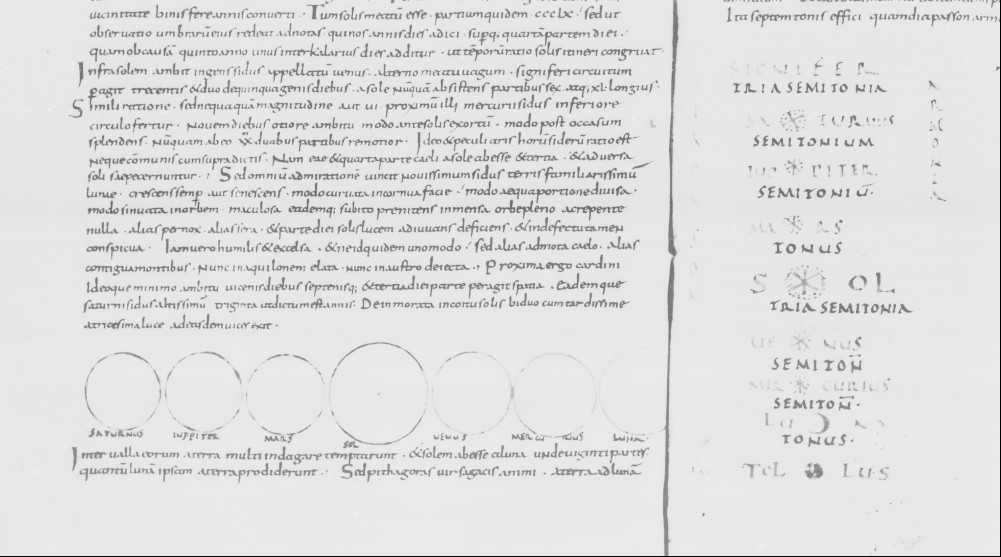 uicinitate binis fere annis conuerti · Tum solis meatū esse · partium quidem · ccclx · sed ut
obseruatio umbrarū eius redeat ad notas quinos annis dies adici · supq; quartā partem diei ·
quam ob causā quinto anno unus interkalarius dies additur · ut tēporū ratio solis itineri congruat ·
Infra solem ambit ingens sidus appellatū uenus · alterno meatu uagum · signiferi circuitum
pagit trecentis & duo de quinquagenis diebus · a sole nūquā absistens partibus sex atq; xl · longius ·
Simili ratione · sed nequaquā magnitudine aut ui · proximū illi mercurii sidus inferiore
circulo fertur · nouem diebus ociore ambitu modo ante solis exortū · modo post occasum
splendens · Nūquam ab eo xx duabus partibus remotior · Ideo & peculiaris horū siderū ratio est
neque cōmunis cum supra dictis · Nam eae & quarta parte caeli a sole abesse & tertia · & aduersa
soli saepe cernuntur · Sed omniū admiratione uincit nouissimum sidus terris familiarissimū
lunae · crescens semp aut senescens · modo curuata in cornua facie · modo aequa portione diuisa ·
modo sinuata in orbem · maculosa eademq; subito prenitens inmensa orbe pleno ac repente
nulla · alias pernox · alias sera · & parte diei solis lucem adiuuans deficiens · & in defectu tamen
conspicua · Iam uero humilis & excelsa · & ne id quidem uno modo · sed alias admota caelo · alias
contigua montibus · nunc in aquilonem elata · nunc in austro deiecta · Proxima ergo cardini
Ideoque minimo ambitu uicenis diebus septenisq; & tertia diei parte peragit spatia · Eadem que
saturni sidus altissimū triginta ut dictum est annis · Dein morata in coitu solis biduo cum tardissime
a tricesima luce ad easdem uices exit ·
SATURNUS IUPPITER MARS SOL UENUS MERCURIUS LUNA
Interualla eorum a terra multi indagare temptarunt · & solem abesse a luna undeuiginti partes
quantū lunā ipsam a terra prodiderunt · Sed pithagoras uir sagacis animi · a terra ad lunā
Ita septem tonis effici quam diapason arm
SIGNIFER
TRIA SEMITONIA
SATURNUS
SEMITONIUM
IUPPITER
SEMITONIŪ ·
MARS
TONUS
SOL
TRIA SEMITONIA
UENUS
SEMITOÑ
MERCURIUS
SEMITOÑ ·
LUNA
TONUS ·
TELLUS